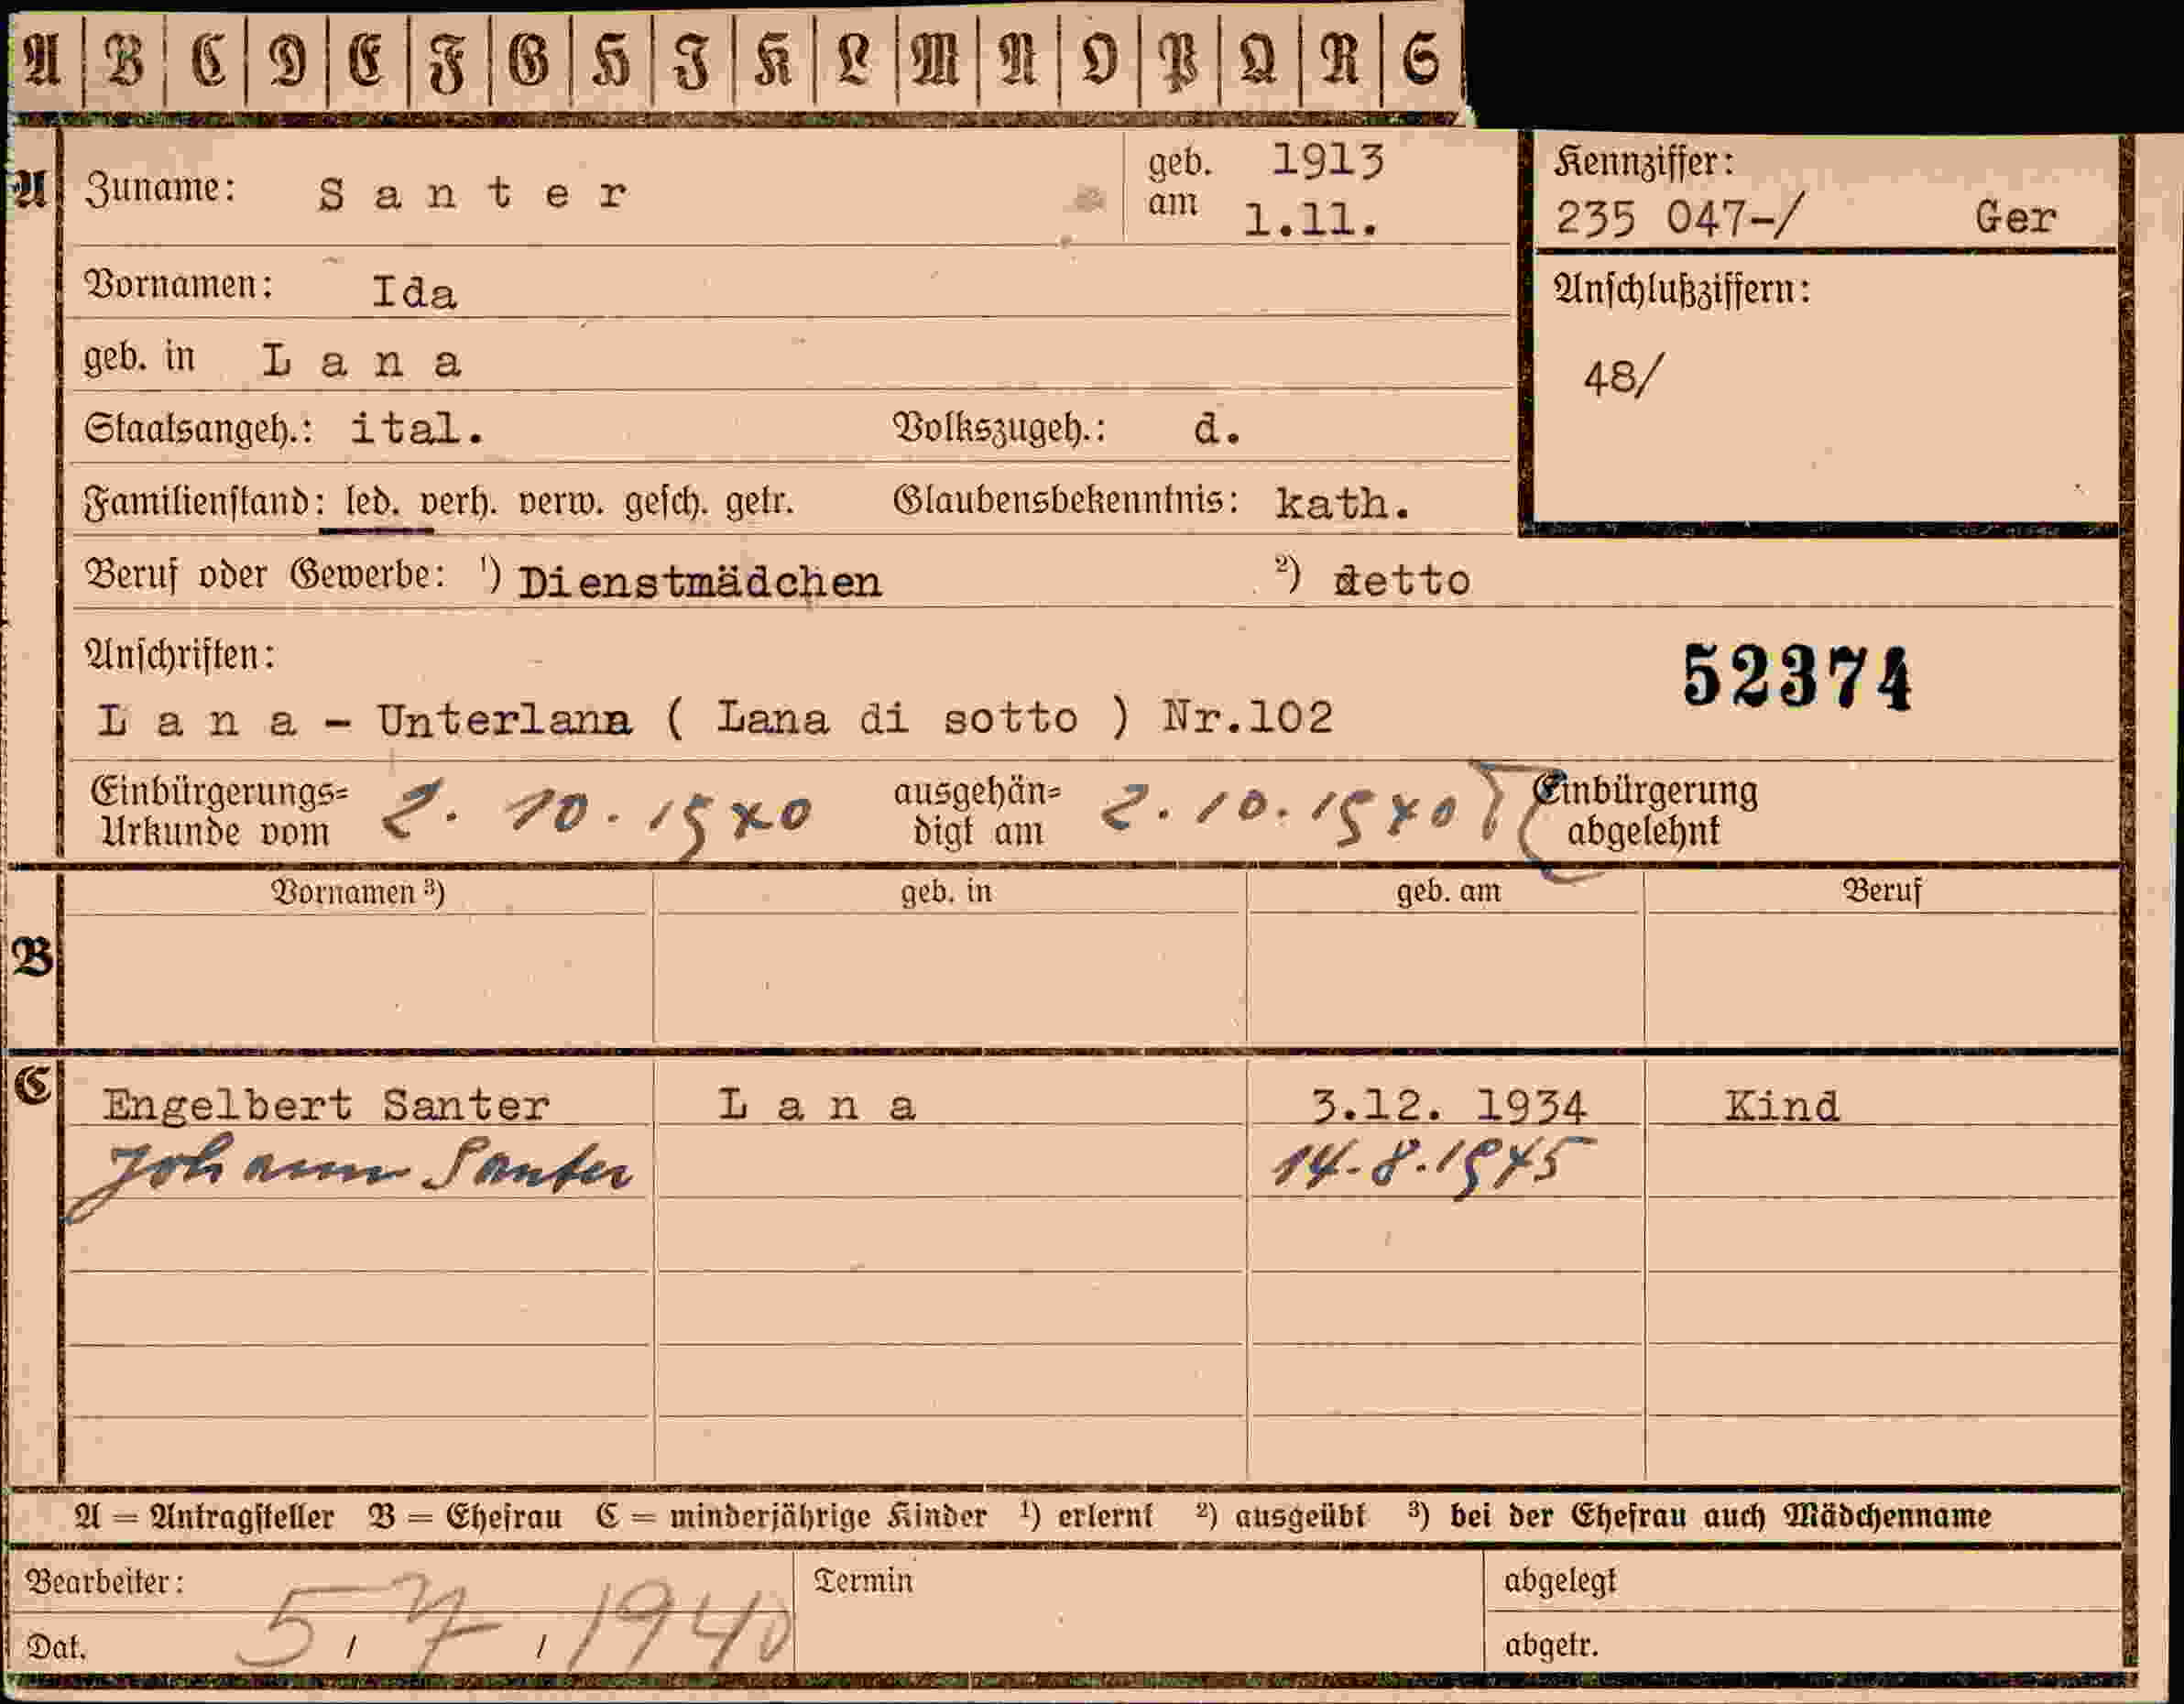 A B C D E F G H I K L M N O P Q R S
A Zuname: Santer geb. am 1913 1.11. Kennziffer:
235 047-/ Ger
Vornamen: Ida Anschlußziffern:
geb. in Lana 48/
Staatsangeh.: ital. Volkszugeh.: d.
Familienstand: led. verh. verw. gesch. getr. Glaubensbekenntnis: kath.
Beruf oder Gewerbe: ¹) Dienstmädchen ²) detto
Anschriften: 52374
Lana - Unterlana ( Lana di sotto ) Nr.102
Einbürgerungs= 2. 10. 1940 ausgehän= 2. 10. 1940 Einbürgerung
Urkunde vom digt am abgelehnt
Vornamen ³) geb. in geb. am Beruf
B
C Engelbert Santer Lana 3.12. 1934 Kind
Johann Santer 14.8.1945
A = Antragsteller B = Ehefrau C = minderjährige Kinder ¹) erlernt ²) ausgeübt ³) bei der Ehefrau auch Mädchenname
Bearbeiter: Termin abgelegt
Dat. 5 / 7 / 1940 abgetr.